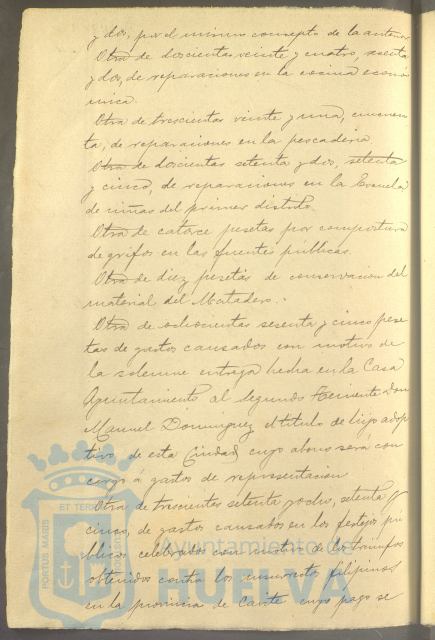 y dos, por el mismo concepto de la anterior.
Otra de doscientas veinte y cuatro, sesenta
y dos, de reparaciones en la cocina econó
mica.
Otra de trescientas veinte y una, cincuen
ta, de reparaciones en la pescadería
Otra de doscientas setenta y dos, setenta
y cinco, de reparaciones en la Escuela
de niñas del primer distrito
Otra de catorce pesetas por compostura
de grifos en las fuentes públicas.
Otra de diez pesetas de conservacion del
material del Matadero.
Otra de ochocientas sesenta y cinco pese
tas de gastos causados con motivo de
la solemne entrega hecha en la Casa
Ayuntamiento al Segundo Teniente Don
Manuel Dominguez del título de hijo adop
tivo de esta Ciudad cuyo abono será con
cargo á gastos de representacion
Otra de trescientas setenta y ocho, setenta y
cinco, de gastos causados en los festejos pú
blicos celebrados con motivo de los triunfos
obtenidos contra los insurrectos filipinos
en la provincia de Cavite cuyo pago se
PORTUS MARIS
ET TERRÆ
Ayuntamiento de
HUELVA